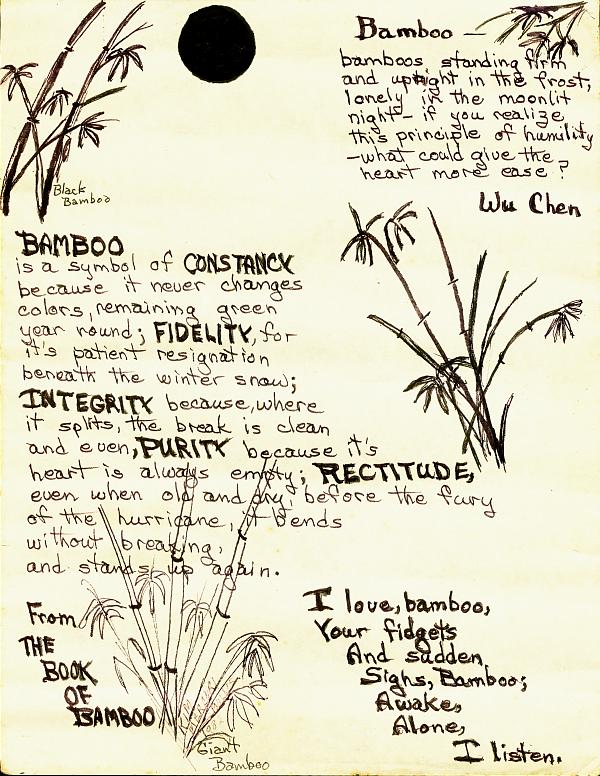 Bamboo —
bamboos standing firm
and upright in the frost,
lonely in the moonlit
night — if you realize
this principle of humility
— what could give the
heart more ease?
Wu Chen
Black
Bamboo
BAMBOO
is a symbol of CONSTANCY
because it never changes
colors, remaining green
year round; FIDELITY, for
it's patient resignation
beneath the winter snow;
INTEGRITY because, where
it splits, the break is clean
and even, PURITY because it's
heart is always empty; RECTITUDE,
even when old and dry, before the fury
of the hurricane, it bends
without breaking,
and stands up again.
From
THE
BOOK
OF
BAMBOO
Giant
Bamboo
I love, bamboo,
Your fidgets
And sudden
Sighs, Bamboo;
Awake,
Alone,
I listen.